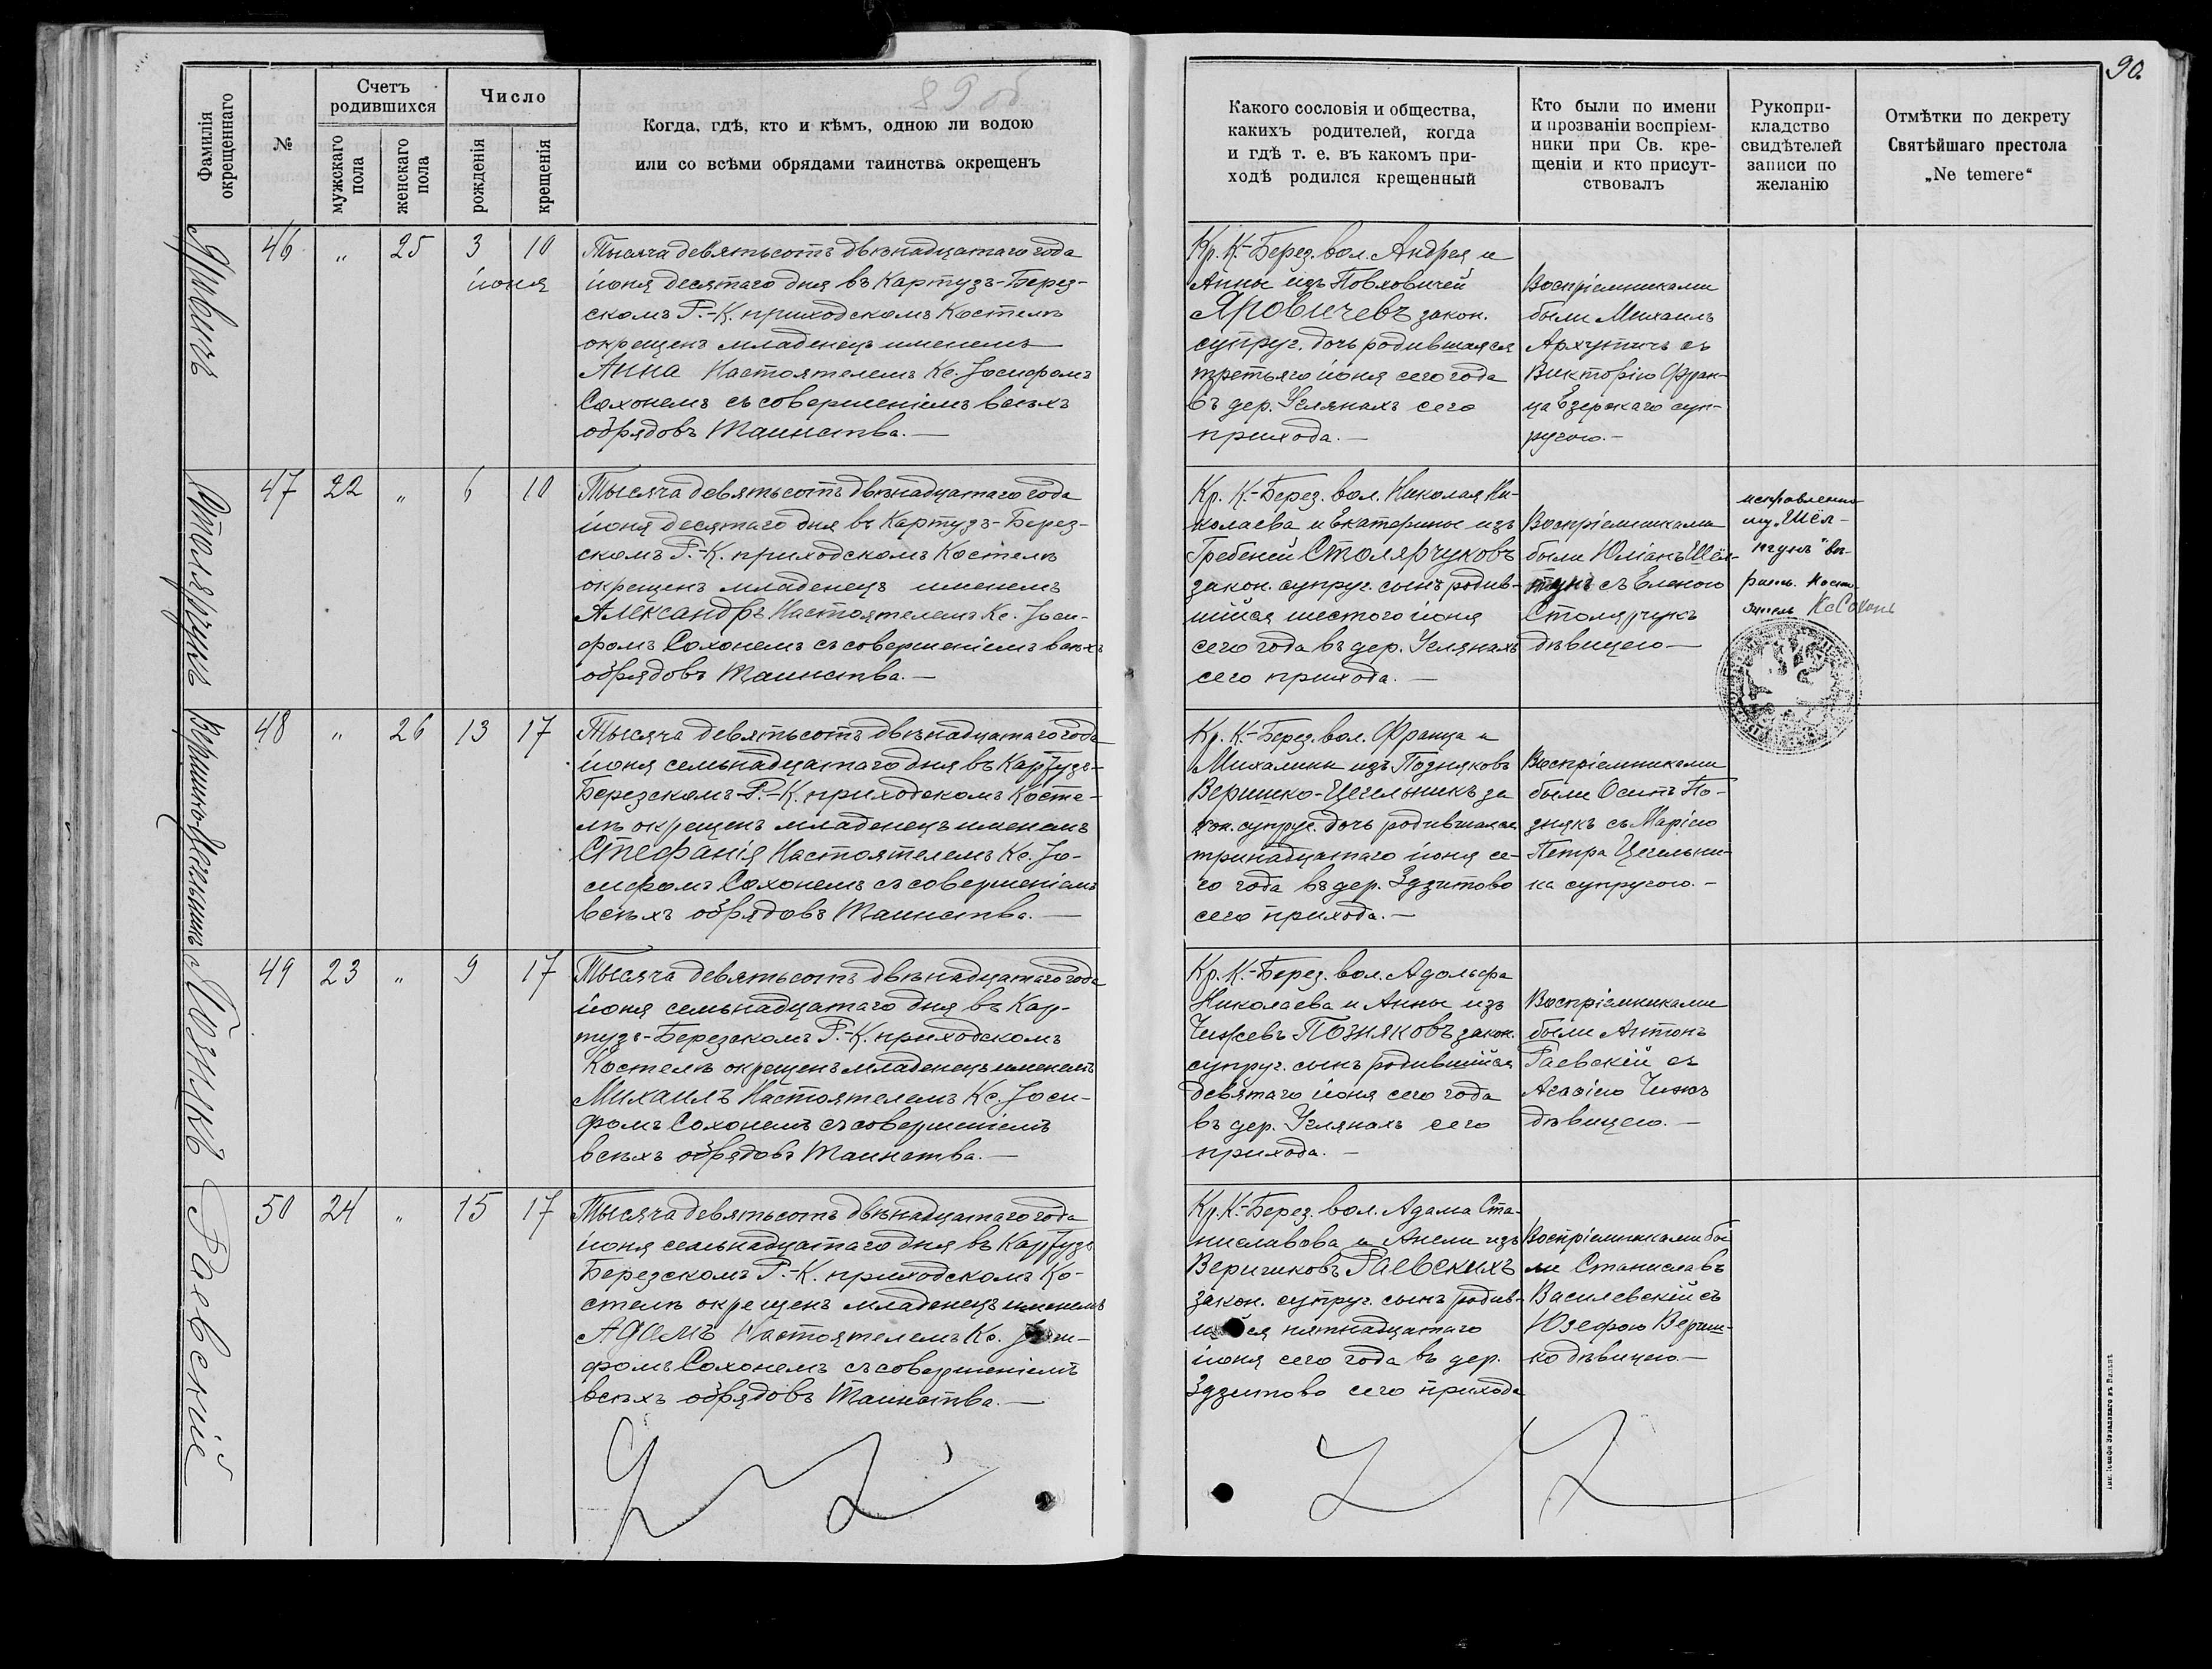 90.
89 об
Фамилія окрещеннаго
№
Счетъ родившихся
мужскаго пола
женскаго пола
Число
рожденія
крещенія
Когда, гдѣ, кто и кѣмъ, одною ли водою
или со всѣми обрядами таинства окрещенъ
Какого сословія и общества,
какихъ родителей, когда
и гдѣ т. е. въ какомъ при-
ходѣ родился крещенный
Кто были по имени
и прозваніи воспріем-
ники при Св. кре-
щеніи и кто присут-
ствовалъ
Рукопри-
кладство
свидѣтелей
записи по
желанію
Отмѣтки по декрету
Святѣйшаго престола
„Ne temere“
Яровичъ
46 „ 25 3 10
іюня
Тысяча девятьсотъ двѣнадцатаго года
іюня десятаго дня въ Картузъ-Берез-
скомъ Р.-К. приходскомъ Костелѣ
окрещенъ младенецъ именемъ
Анна Настоятелемъ Кс. Іосифомъ
Сохонемъ съ совершеніемъ всѣхъ
обрядовъ Таинства.—
Кр. К.-Берез. вол. Андрея и
Анны изъ Повховичей
Яровичевъ закон.
супруг. дочь родившаяся
третьяго іюня сего года
въ дер. Углянахъ сего
прихода.—
Воспріемниками
были Михаилъ
Архутичъ съ
Викторіею Фран-
ца Езерскаго суп-
ругою.—
Столярчукъ
47 22 „ 6 10
Тысяча девятьсотъ двѣнадцатаго года
іюня десятаго дня въ Картузъ-Берез-
скомъ Р.-К. приходскомъ Костелѣ
окрещенъ младенецъ именемъ
Александръ Настоятелемъ Кс. Іоси-
фомъ Сохонемъ съ совершеніемъ всѣхъ
обрядовъ Таинства.—
Кр. К.-Берез. вол. Николая Ни-
колаева и Екатерины изъ
Гребеней Столярчуковъ
закон. супруг. сынъ родив-
шійся шестого іюня
сего года въ дер. Углянахъ
сего прихода.—
Воспріемниками
были Юліанъ Шёл-
съ Еленою
Столярчукъ
дѣвицею—
Кс Сохонь
Веришко-Цегельникъ
48 „ 26 13 17
Тысяча девятьсотъ двѣнадцатаго года
іюня семьнадцатаго дня въ Картузъ-
Березскомъ Р.-К. приходскомъ Косте-
лѣ окрещенъ младенецъ именемъ
Стефанія Настоятелемъ Кс. Іо-
сифомъ Сохонемъ съ совершеніемъ
всѣхъ обрядовъ Таинства.—
Кр. К.-Берез. вол. Франца и
Михалины изъ Поздняковъ
Веришко-Цегельникъ за
кон. супруг. дочь родившаяся
тринадцатаго іюня се-
го года въ дер. Здзитово
сего прихода.—
Воспріемниками
были Осипъ По-
знякъ съ Маріею
Петра Цегельни-
ка супругою.—
Познякъ
49 23 „ 9 17
Тысяча девятьсотъ двѣнадцатаго года
іюня семьнадцатаго дня въ Кар-
тузъ-Березскомъ Р.-К. приходскомъ
Костелѣ окрещенъ младенецъ именемъ
Михаилъ Настоятелемъ Кс. Іоси-
фомъ Сохонемъ съ совершеніемъ
всѣхъ обрядовъ Таинства.—
Кр. К.-Берез. вол. Адольфа
Николаева и Анны изъ
Чижевъ Позняковъ закон.
супруг. сынъ родившійся
девятаго іюня сего года
въ дер. Углянахъ сего
прихода.—
Воспріемниками
были Антонъ
Раевскій съ
Агафіею Чижъ
дѣвицею.—
Раевскій
50 24 „ 15 17
Тысяча девятьсотъ двѣнадцатаго года
іюня семьнадцатаго дня въ Картузъ
Березскомъ Р.-К. приходскомъ Ко-
стелѣ окрещенъ младенецъ именемъ
Адамъ Настоятелемъ Кс. Іоси-
фомъ Сохонемъ съ совершеніемъ
всѣхъ обрядовъ Таинства.—
Кр. К.-Берез. вол. Адама Ста-
ниславова и Анели изъ
Веричиковъ Раевскихъ
закон. супруг. сынъ родив-
шійся пятнадцатаго
іюня сего года въ дер.
Здзитово сего прихода
Воспріемниками бы
ли Станиславъ
Василевскій съ
Юзефою Вериш-
ко дѣвицею.—